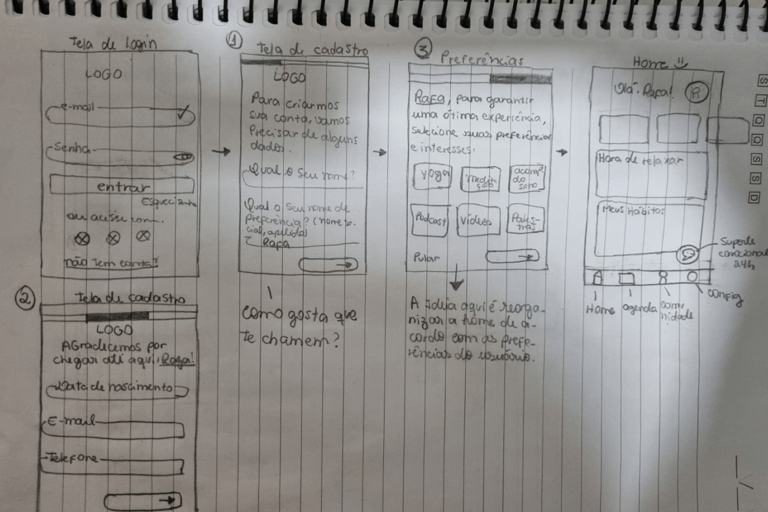 Tela de Login
LOGO
e-mail
Senha
entrar
Esqueci senha
ou acesse com...
não tem conta?
1
Tela de cadastro
LOGO
Para criarmos
sua conta, vamos
Precisar de alguns
dados.
Qual o seu nome?
Qual o seu nome de
preferência? (nome so-
cial, apelido)
Rafa
como gosta que
te chamem?
2
Tela de cadastro
LOGO
AGradecemos por
chegar até aqui, Rafa!
Data de nascimento
E-mail
Telefone
3
Preferências
Rafa, para garantir
uma ótima experiência,
selecione suas preferências
e interesses:
yoga
medita
ção
acomp.
do sono
Podcast
vídeos
Pales-
tras
Pular
A ideia aqui é reorga-
nizar a home de a-
cordo com as prefe-
rências do usuário.
Home
Olá, Rafa!
R
Hora de relaxar
Meus Hábitos
Suporte
emocional
24h
Home
agenda
comu
nidade
config
S T Q Q S S D